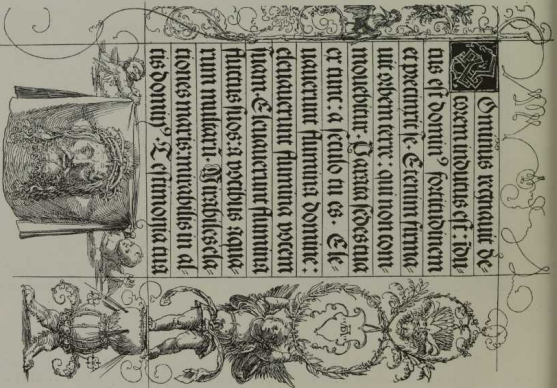 Dominus regnauit de=
corem indutus est: Indu=
tus est dominꝰ fortitudinem
et precinxit se. Etenim firma=
uit orbem terre: qui non com=
mouebitur. Parata sedes tua
ex tunc: a seculo tu es. Ele=
uauerunt flumina domine:
eleuauerunt flumina vocem
suam. Eleuauerunt flumina
fluctus suos: a vocibus aqua=
rum multarꝫ. Mirabiles ela=
tiones maris: mirabilis in al=
tis dominꝰ. Testimonia tua